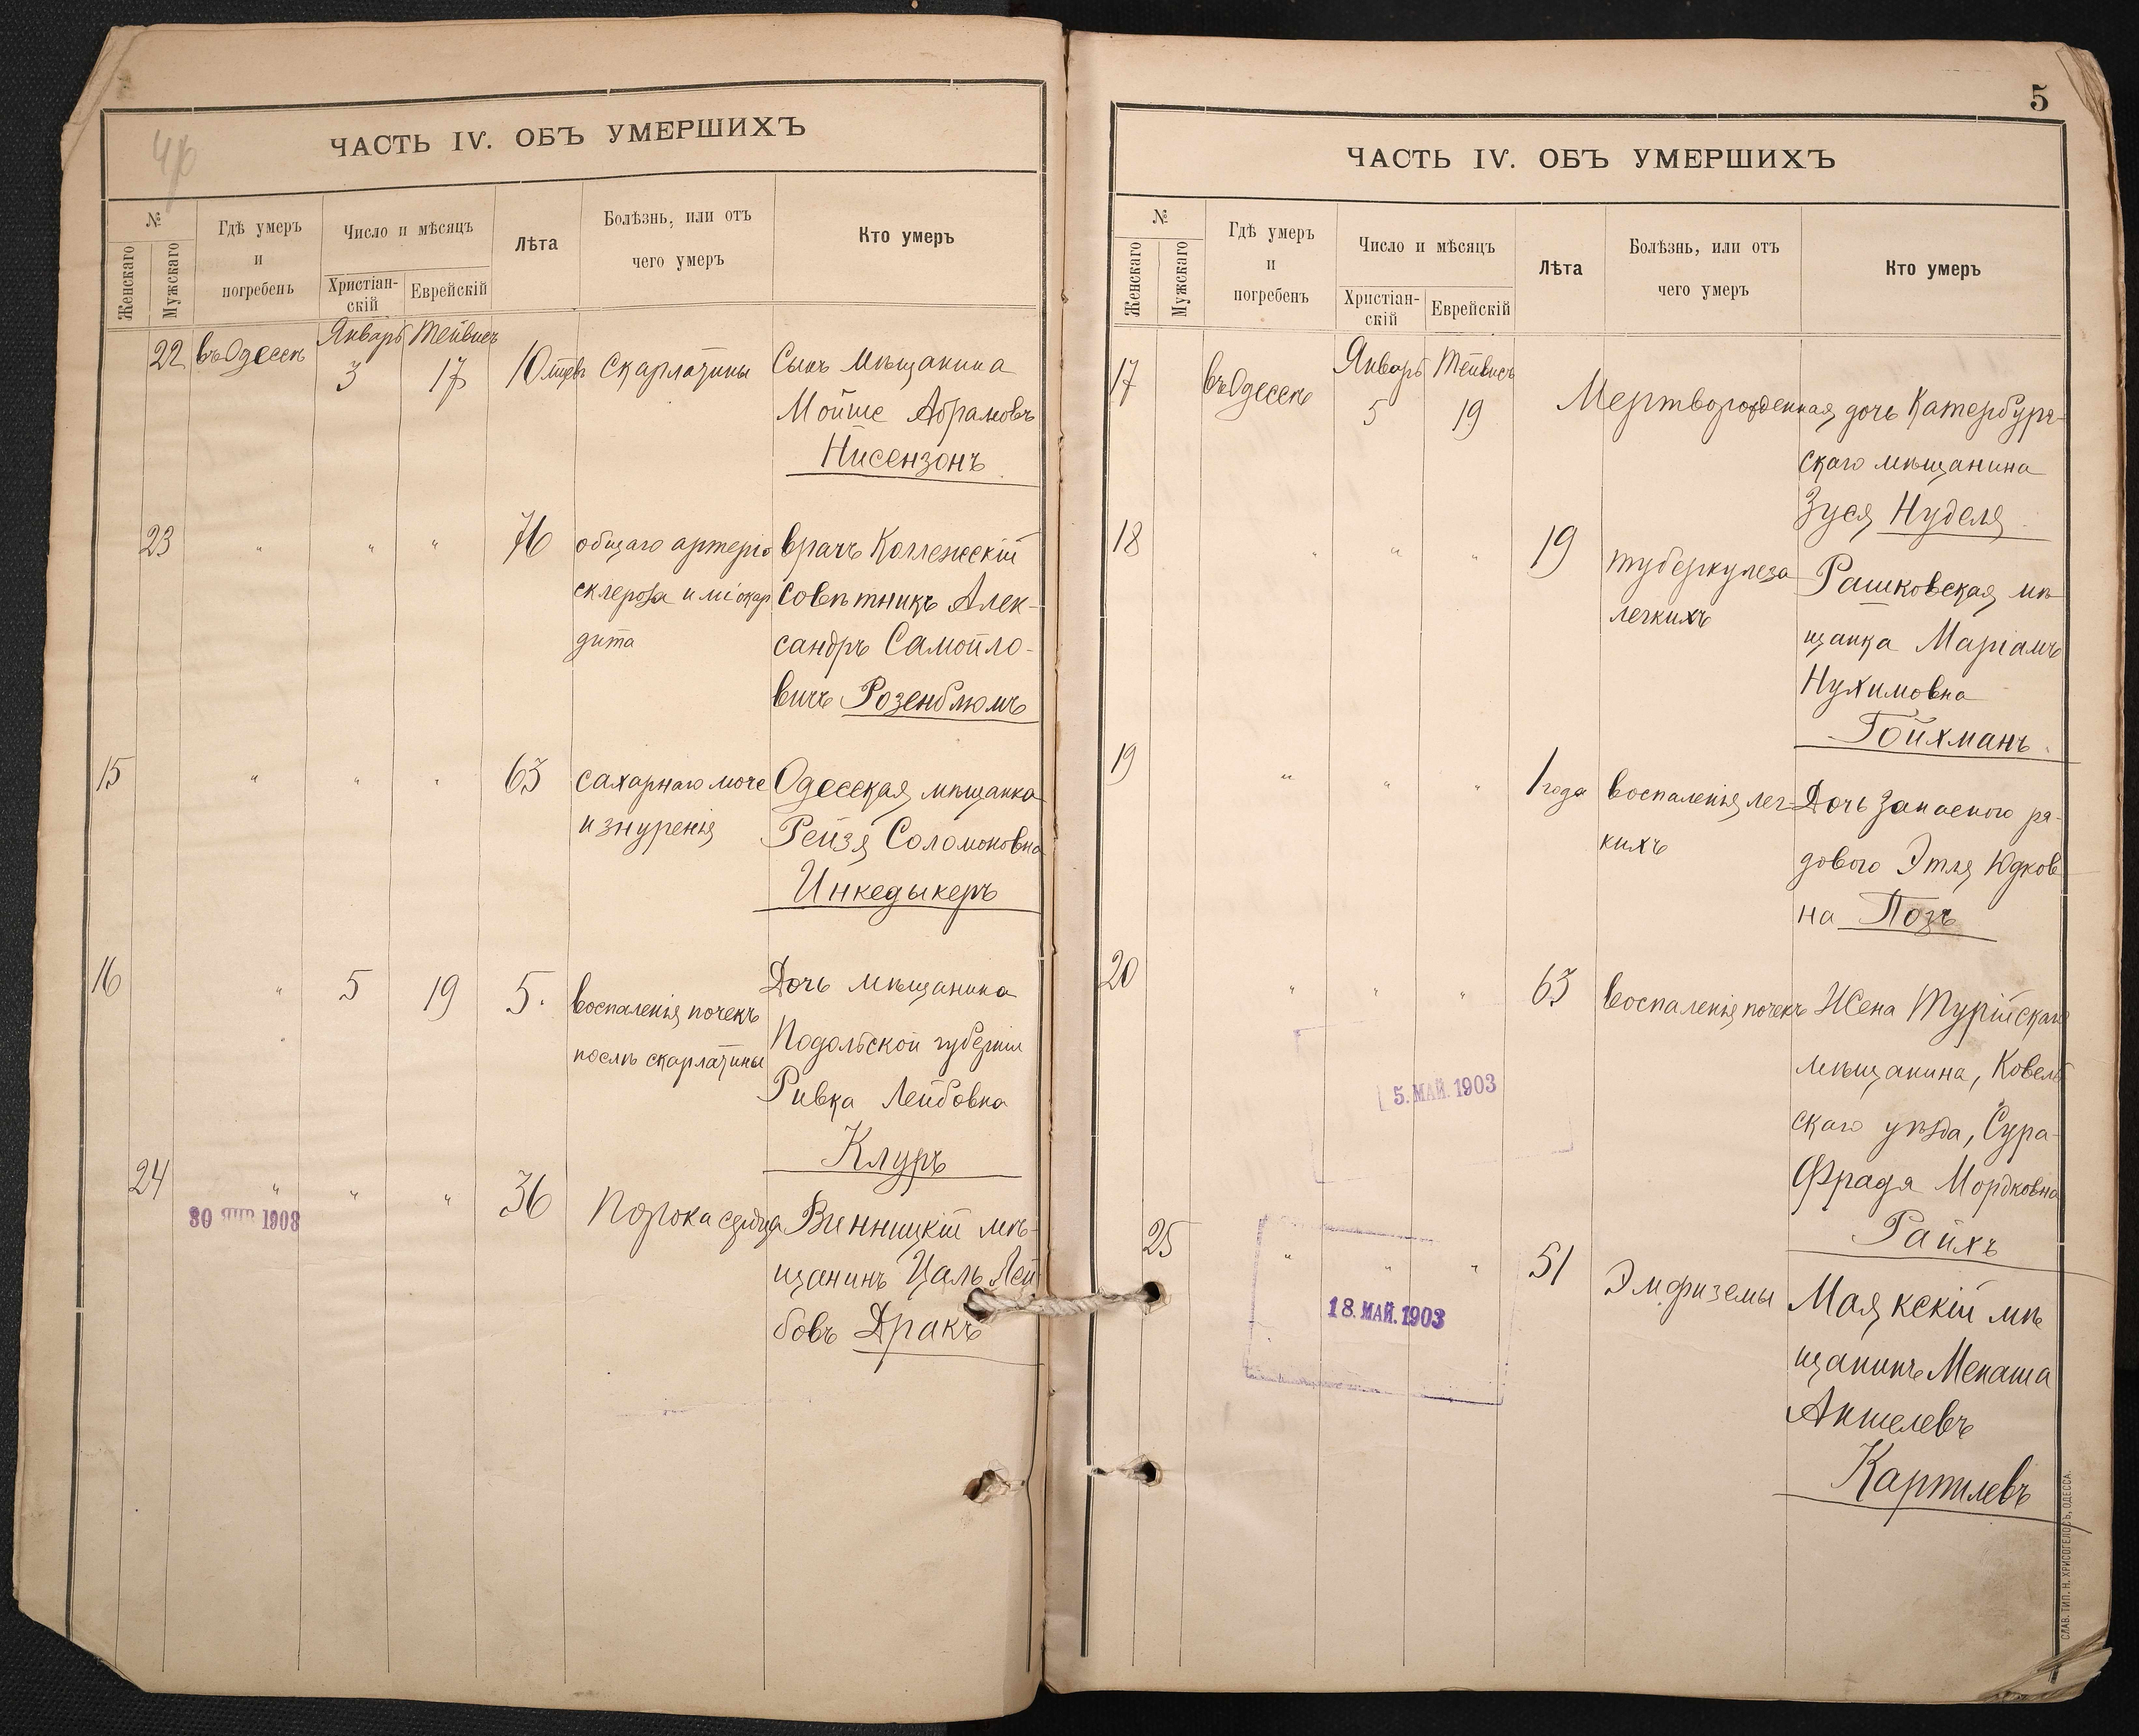 ЧАСТЬ IV. ОБЪ УМЕРШИХЪ
№
Женскаго
Мужскаго
Гдѣ умеръ
и
погребенъ
Число и мѣсяцъ
Христіан-
скій
Еврейскій
Лѣта
Болѣзнь, или отъ
чего умеръ
Кто умеръ
22
въ Одессѣ
Январь
3
Тейвисъ
17
10 лѣтъ
Скарлатины
Сынъ мѣщанина
Мойше Абрамовъ
Нисензонъ
23
"
"
"
76
общаго артеріо
склероза и міокар
дита
врачъ Коллежскій
Совѣтникъ Алек-
сандръ Самойло-
вичъ Розенблюмъ
15
"
"
"
63
сахарнаго моче
изнуренія
Одесская мѣщанка
Рейзя Соломоновна
Инкедыкеръ
16
"
5
19
5.
воспаленія почекъ
послѣ скарлатины
Дочь мѣщанина
Подольской губерніи
Ривка Лейбовна
Клуръ
24
"
"
"
36
Порока сердца
Винницкій мѣ-
щанинъ Цаль Лей
бовъ Дракъ
30 ЯНВ 1903
5
ЧАСТЬ IV. ОБЪ УМЕРШИХЪ
№
Женскаго
Мужскаго
Гдѣ умеръ
и
погребенъ
Число и мѣсяцъ
Христіан-
скій
Еврейскій
Лѣта
Болѣзнь, или отъ
чего умеръ
Кто умеръ
17
въ Одессѣ
Январь
5
Тейвисъ
19
Мертворожденная дочь Катербург-
скаго мѣщанина
Зуся Нуделя
18
"
"
"
19
туберкулеза
легкихъ
Рашковская мѣ
щанка Маріамъ
Нухимовна
Гойхманъ
19
"
"
"
1 года
воспаленія лег-
кихъ
Дочь запасного ря-
дового Этля Юдков
на Позъ
20
"
"
"
63
воспаленія почекъ
Жена Турійскаго
мѣщанина, Ковель
скаго уѣзда, Сура-
Фрадя Мордковна
Райхъ
5. МАЙ. 1903
25
"
"
"
51
Эмфиземы
Маякскій мѣ
щанинъ Менаша
Аншелевъ
18. МАЙ. 1903
СЛАВ. ТИП. Н. ХРИСОГЕЛОСЪ, ОДЕССА.